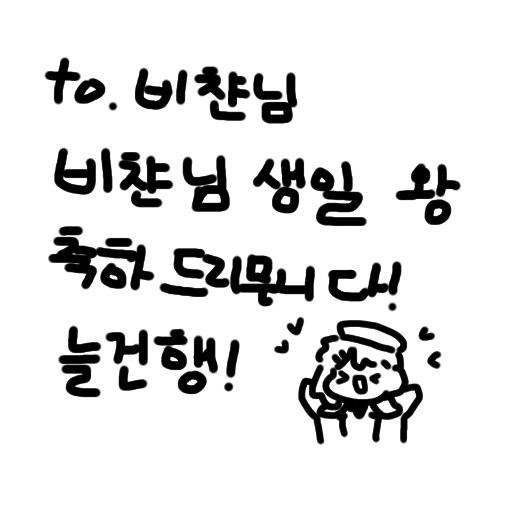 to. 비챤님
비챤님 생일 왕
축하드리뭅니다!
늘건행!